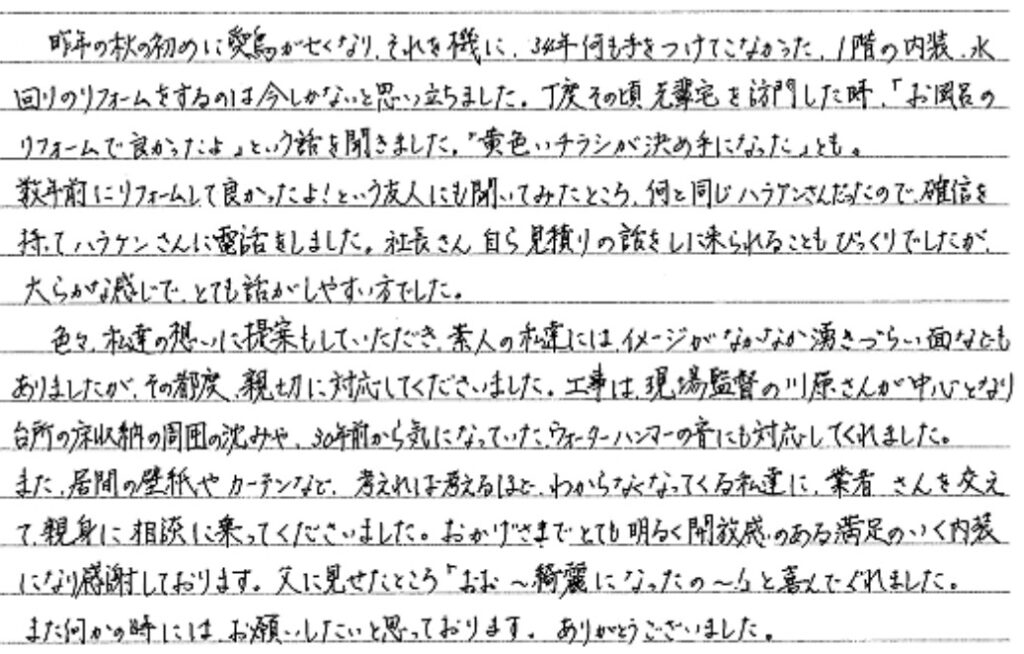 昨年の秋の初めに愛鳥が亡くなり、それを機に、34年何も手をつけてこなかった、1階の内装、水
回りのリフォームをするのは今しかないと思い立ちました。丁度その頃先輩宅を訪問した時、「お風呂の
リフォームで良かったよ」という話を聞きました。「黄色いチラシが決め手になった」とも。
数年前にリフォームして良かったよ!という友人にも聞いてみたところ、何と同じハラケンさんだったので、確信を
持ってハラケンさんに電話をしました。社長さん自ら見積りの話をしに来られることもびっくりでしたが、
大らかな感じで、とても話がしやすい方でした。
色々、私達の想いに提案もしていただき、素人の私達には、イメージがなかなか湧きづらい面なども
ありましたが、その都度、親切に対応してくださいました。工事は、現場監督の川原さんが中心となり
台所の床収納の周囲の沈みや、30年前から気になっていた、ウォーターハンマーの音にも対応してくれました。
また、居間の壁紙やカーテンなど、考えれば考えるほど、わからなくなってくる私達に、業者さんを交え
て、親身に相談に乗ってくださいました。おかげさまでとても明るく開放感のある満足のいく内装
になり感謝しております。父に見せたところ「おお〜綺麗になったの〜」と喜んでくれました。
また何かの時には、お願いしたいと思っております。ありがとうございました。